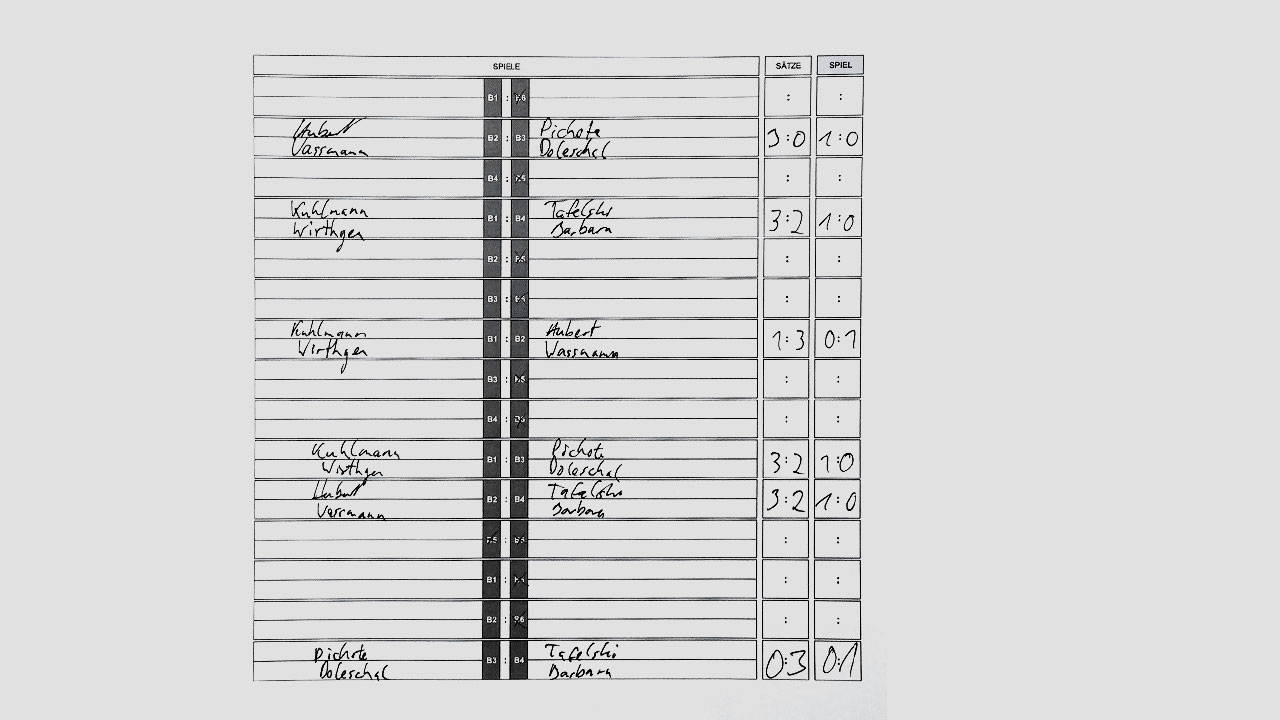 SPIELE SÄTZE SPIEL
B1 : B6 : :
Hubert Pichote
B2 : B3 3:0 1:0
Vassmann Doleschal
B4 : B5 : :
Kuhlmann Tafelski
B1 : B4 3:2 1:0
Wirthgen Barbara
B2 : B5 : :
B3 : : :
Kuhlmann Hubert
B1 : B2 1:3 0:1
Wirthgen Vassmann
B3 : B5 : :
B4 : : :
Kuhlmann Pichote
B1 : B3 3:2 1:0
Wirthgen Doleschal
Hubert Tafelski
B2 : B4 3:2 1:0
Vassmann Barbara
: : :
B1 : : :
B2 : B6 : :
Pichote Tafelski
B3 : B4 0:3 0:1
Doleschal Barbara